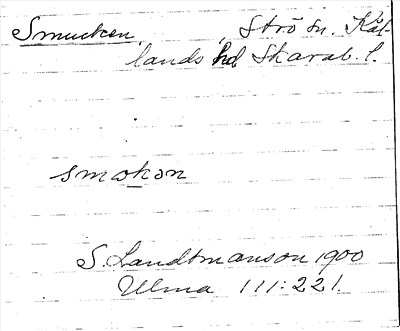 Smucken, Strö sn. Kål-
lands hd Skarab. l.
smokən
S. Landtmanson 1900
Ulma 111:221.